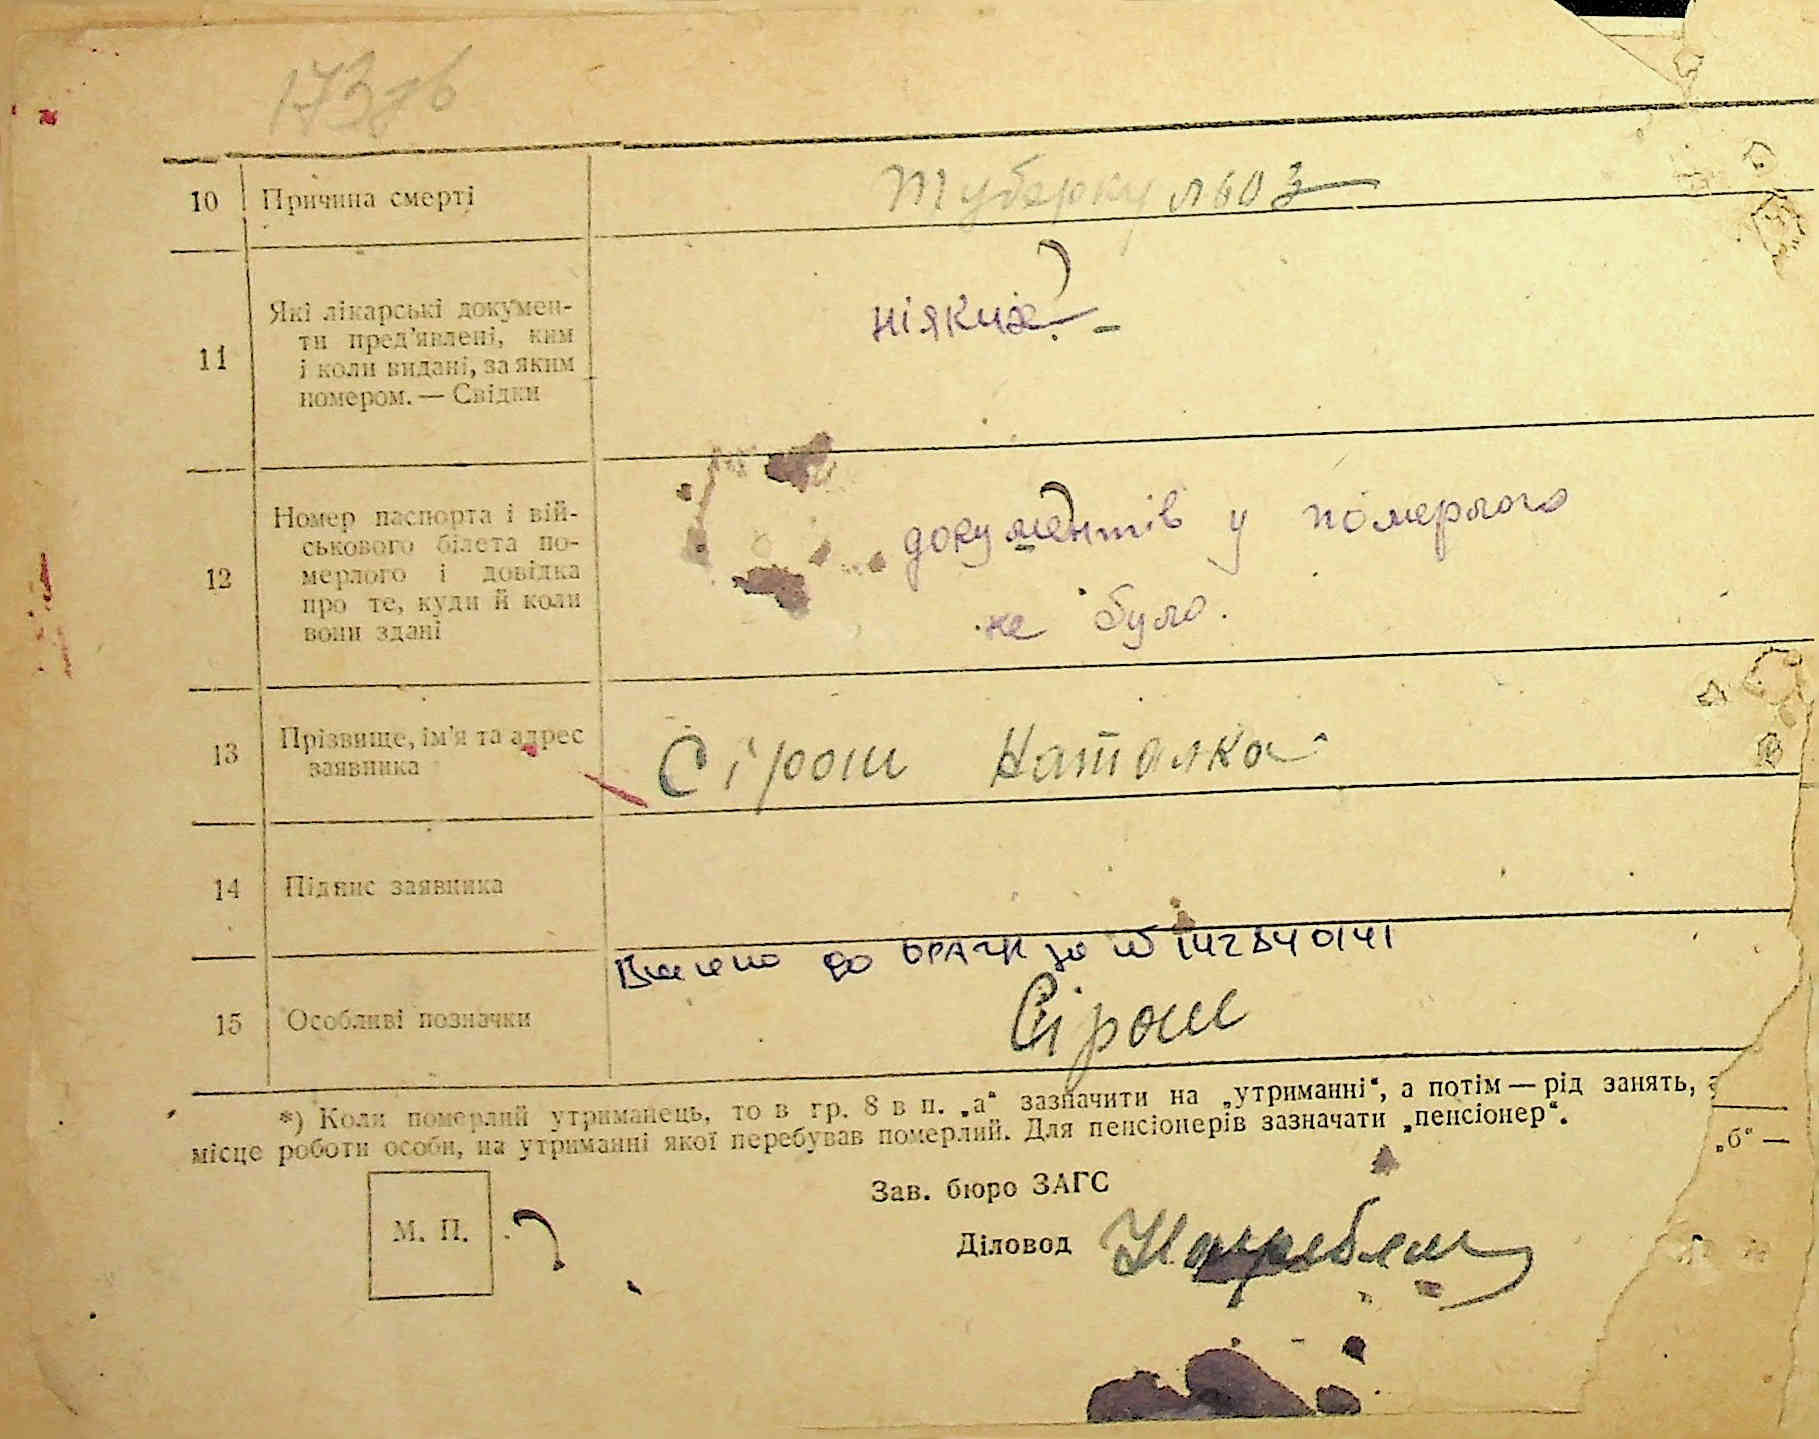 173зв
10 Причина смерті туберкульоз
11 Які лікарські докумен-
ти пред'явлені, ким
і коли видані, за яким
номером. — Свідки
ніяких. -
12 Номер паспорта і вій-
ськового білета по-
мерлого і довідка
про те, куди й коли
вони здані
документів у померлого
не було.
13 Прізвище, ім'я та адрес
заявника
Сірош Наталка
14 Підпис заявника
Внесено до ДРАЦС за № 142840141
15 Особливі позначки
Сірош
*) Коли померлий утриманець, то в гр. 8 в п. „а“ зазначити на „утриманні“, а потім — рід занять, з
„б“ —
місце роботи особи, на утриманні якої перебував померлий. Для пенсіонерів зазначати „пенсіонер“.
Зав. бюро ЗАГС
М. П.
Діловод